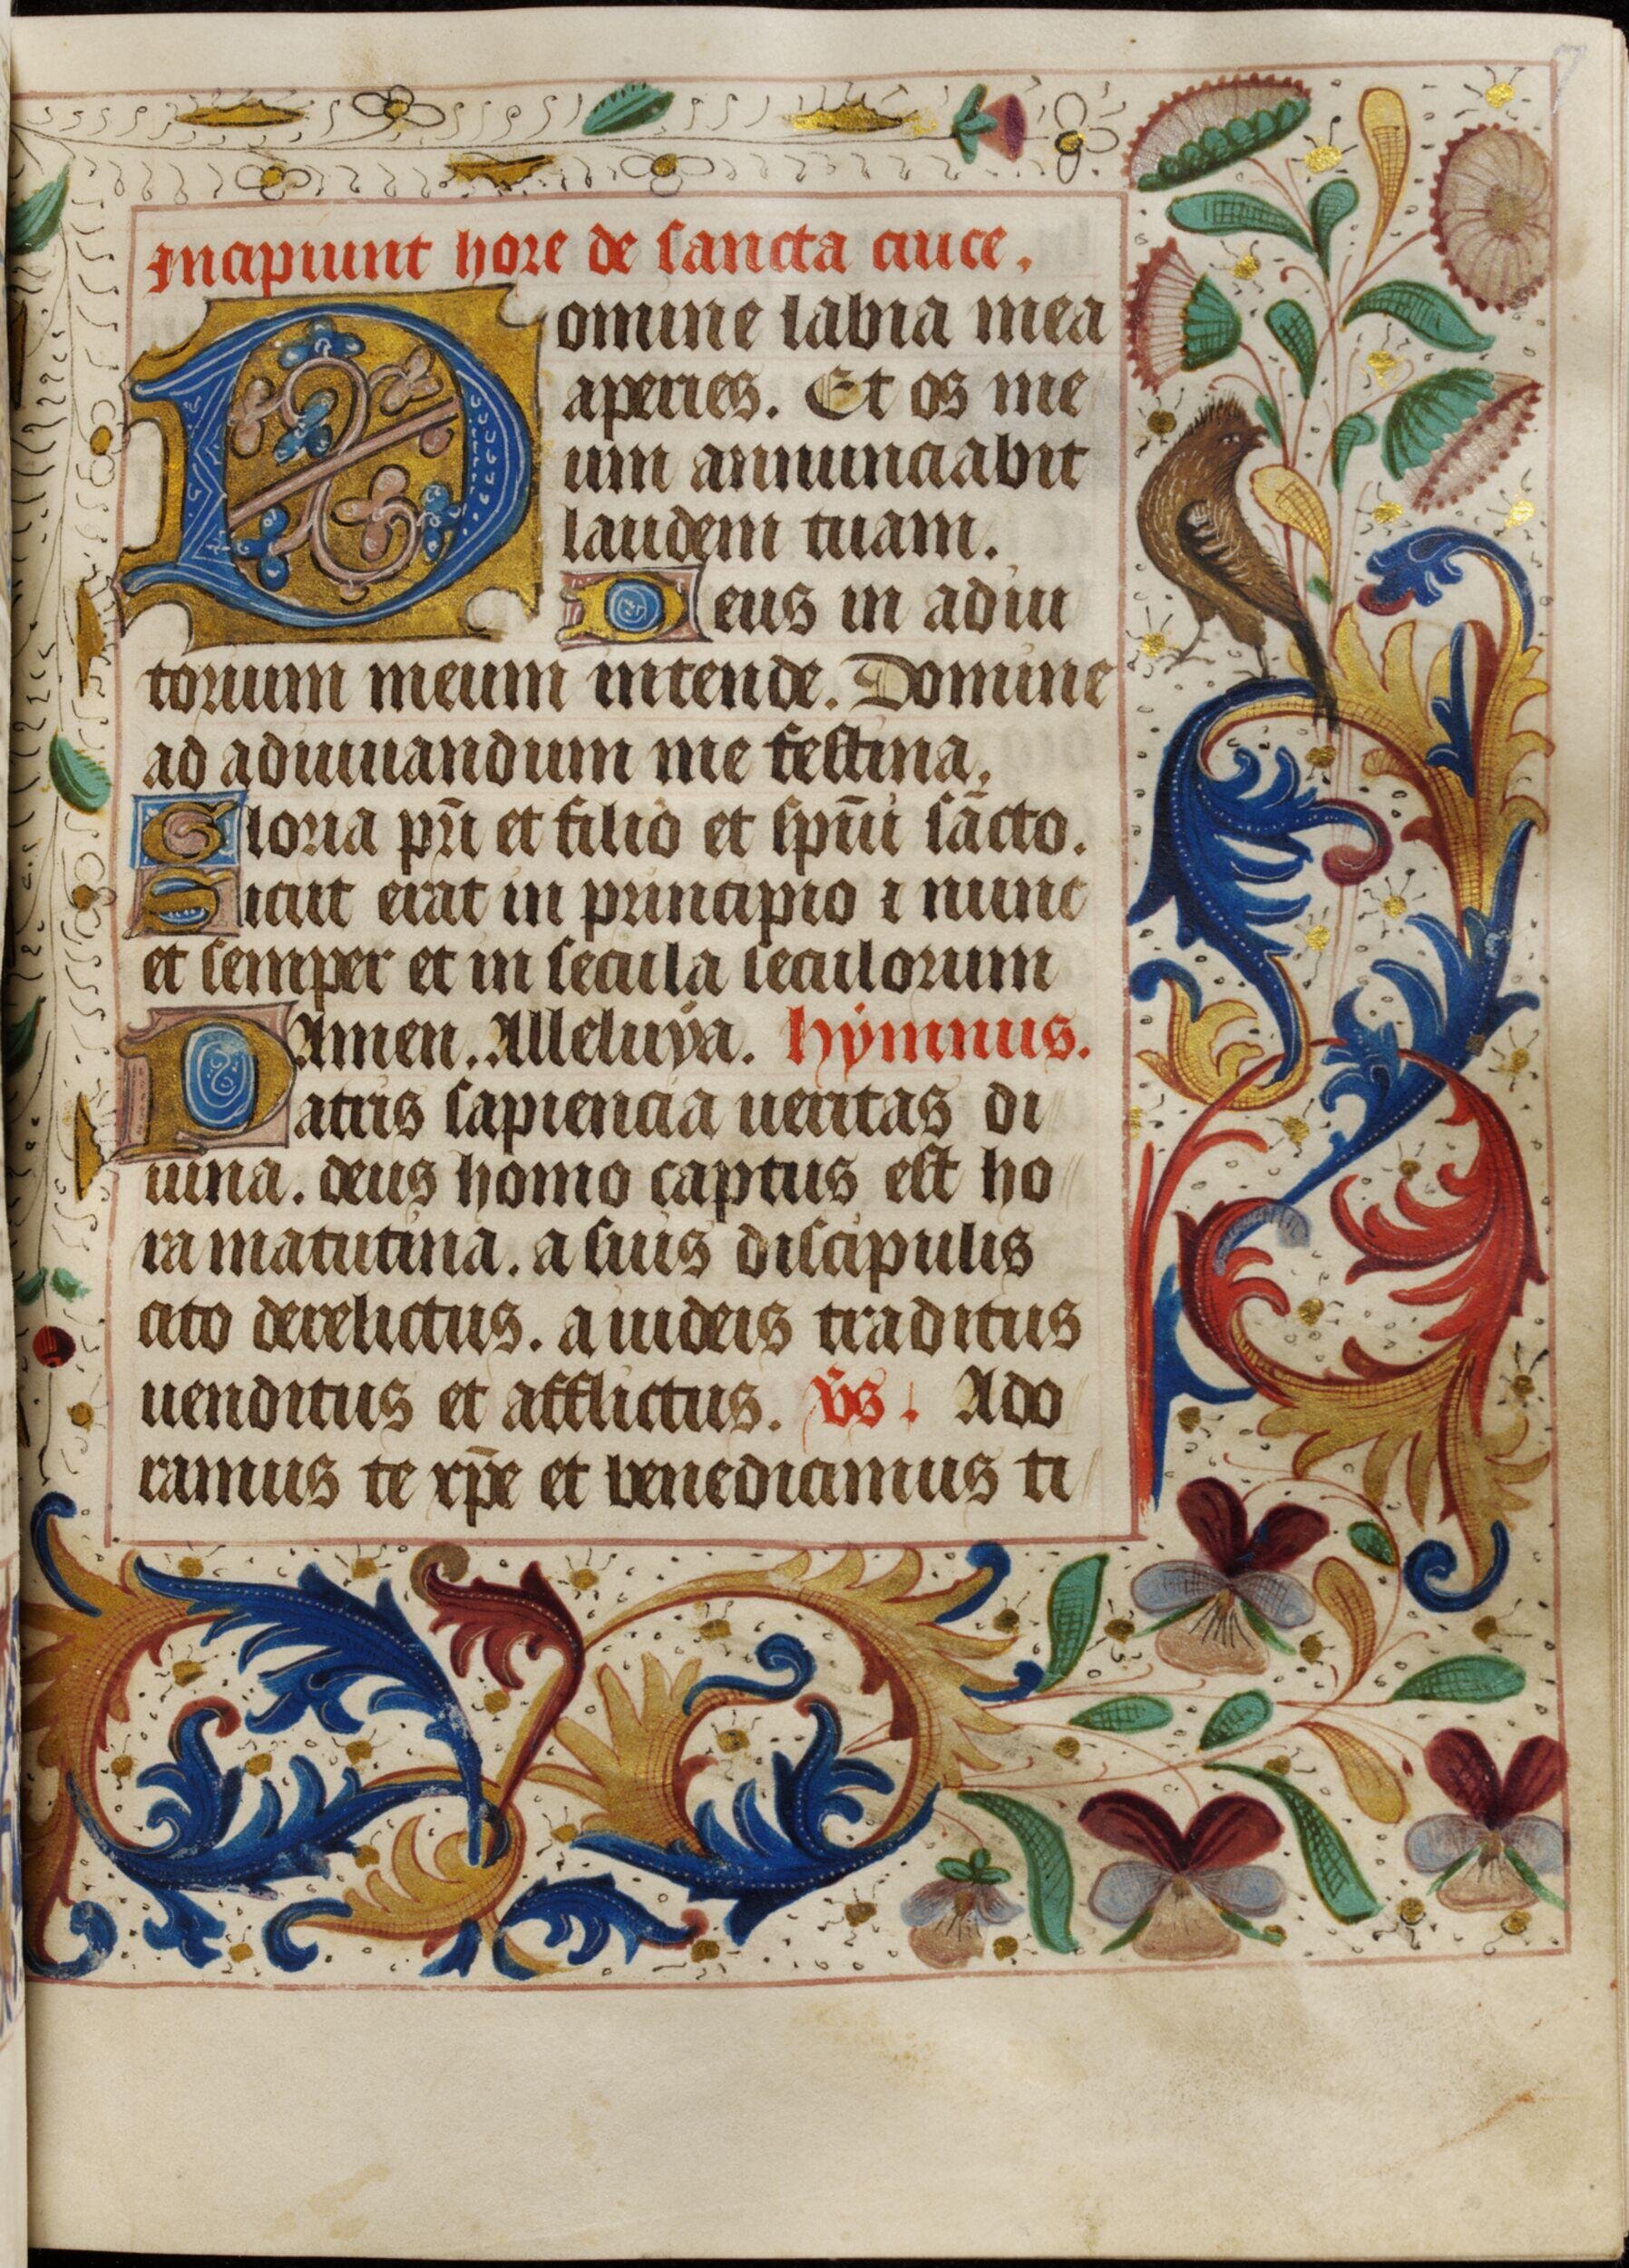 Incipiunt hore de sancta cruce.
Domine labia mea
aperies. Et os me
um annunciabit
laudem tuam.
Deus in adiu
torium meum intende. Domine
ad adiuuandum me festina.
Gloria pr̄i et filio et spūi sācto.
Sicut erat in principio ⁊ nunc
et semper et in secula seculorum
Amen. Alleluya. hymnus.
Patris sapiencia ueritas di
uina. deus homo captus est ho
ra matutina. a suis discipulis
cito derelictus. a iudeis traditus
uenditus et afflictus. v̄s. Ado
ramus te xp̄e et benedicimus ti